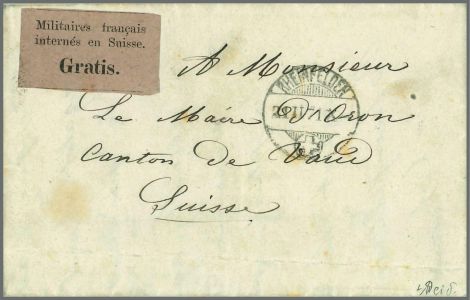 Militaires français
internés en Suisse.
Gratis.
A Monsieur
RHEINFELDEN
Le Maire D'Oron
Canton de Vaud
Suisse